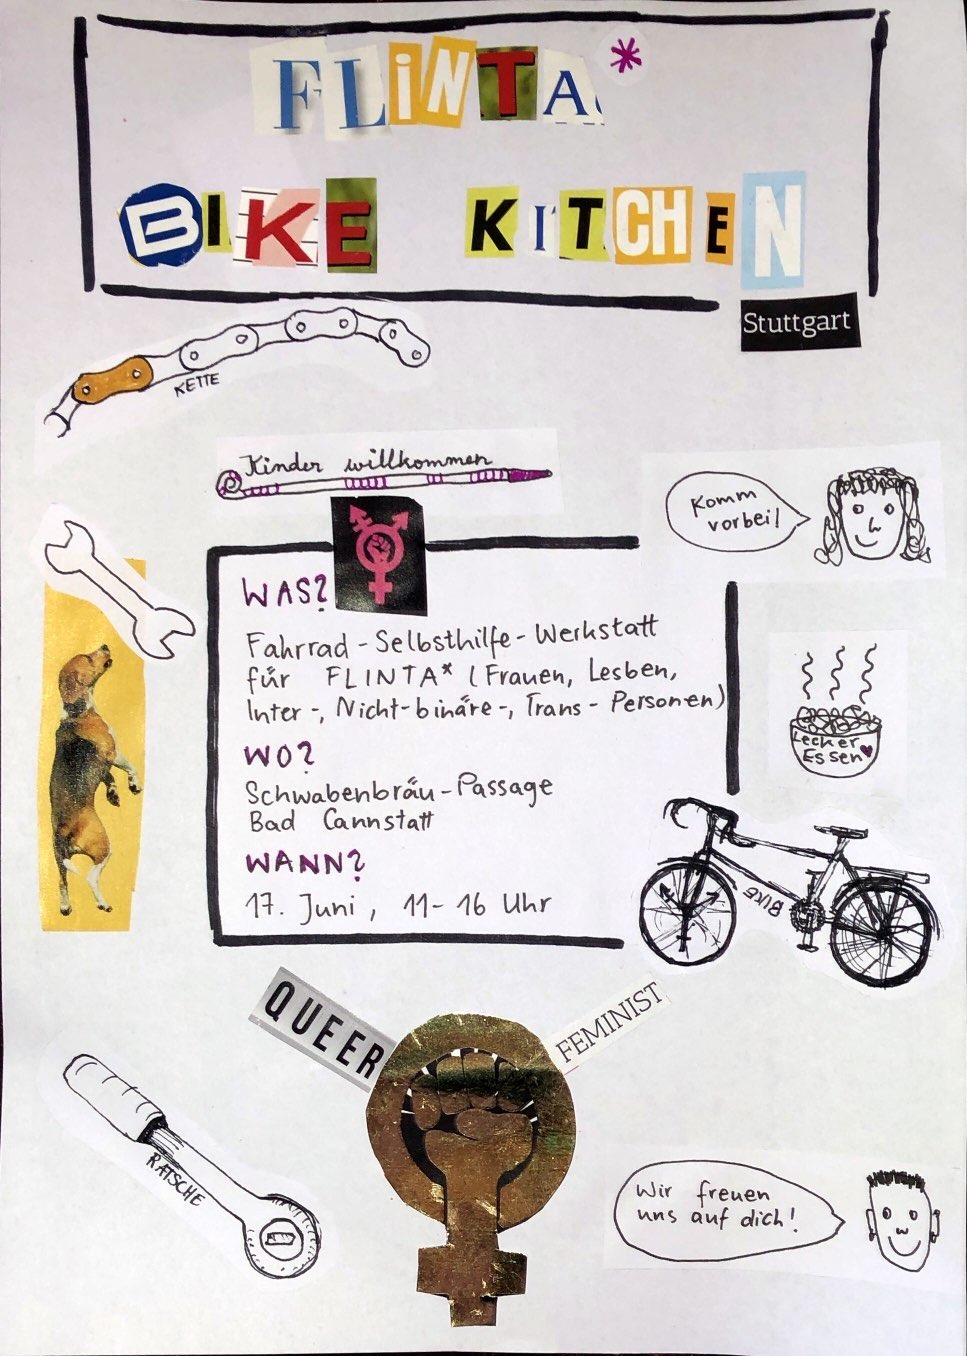 FLiNTA*
BIKE KITCHEN
Stuttgart
KETTE
Kinder willkommen
Komm
vorbei!
WAS?
Fahrrad-Selbsthilfe-Werkstatt
für FLINTA* (Frauen, Lesben,
Inter-, Nicht-binäre-, Trans-Personen)
Lecker
Essen
WO?
Schwabenbräu-Passage
Bad Cannstatt
WANN?
17. Juni, 11-16 Uhr
BIKE
QUEER
FEMINIST
RATSCHE
Wir freuen
uns auf dich!